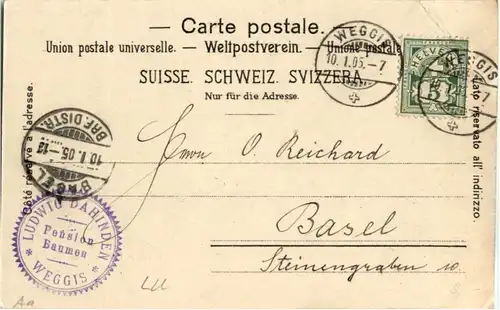 — Carte postale. —
Union postale universelle. – Weltpostverein. – Unione postale
SUISSE. SCHWEIZ. SVIZZERA.
Nur für die Adresse.
WEGGIS
10.I.05.–7
HELVETIA
5
WEGGIS
7
Côté réservé à l'adresse.
Lato riservato all' indirizzo.
BASEL
10.I.05.–12
BRF. DISTR.
Herrn O. Reichard
Basel
Steinengraben 10
LUDWIG DAHINDEN
Pension
Baumen
WEGGIS